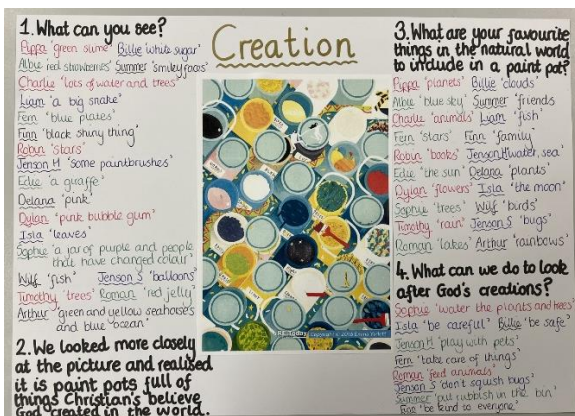 Creation
1. What can you see?
Pippa 'green slime' Billie 'white sugar'
Albie 'red strawberries' Summer 'smiley faces'
Charlie 'lots of water and trees'
Liam 'a big snake'
Fern 'blue plates'
Finn 'black shiny thing'
Robin 'stars'
Jenson H 'some paintbrushes'
Edie 'a giraffe'
Delana 'pink'
Dylan 'pink bubble gum'
Isla 'leaves'
Sophie 'a jar of purple and people
that have changed colour'
Wilf 'fish' Jenson S 'balloons'
Timothy 'trees' Roman 'red jelly'
Arthur 'green and yellow seahorses
and blue ocean'
2. We looked more closely
at the picture and realised
it is paint pots full of
things Christian's believe
God created in the world.
3. What are your favourite
things in the natural world
to include in a paint pot?
Pippa 'planets' Billie 'clouds'
Albie 'blue sky' Summer 'friends
Charlie 'animals' Liam 'fish'
Fern 'stars' Finn 'family'
Robin 'books' Jenson H 'water, sea'
Edie 'the sun' Delana 'plants'
Dylan 'flowers' Isla 'the moon'
Sophie 'trees' Wilf 'burds'
Timothy 'rain' Jenson S 'bugs'
Roman 'lakes' Arthur 'rainbows'
4. What can we do to look
after God's creations?
Sophie 'water the plants and trees'
Isla 'be careful' Billie 'be safe'
Jenson H 'play with pets'
Fern 'take care of things'
Roman 'feed animals'
Jenson S 'don't squish bugs'
Summer 'put rubbish in the bin'
'be kind to everyone'
RE Today Copyright © 2016 Emma